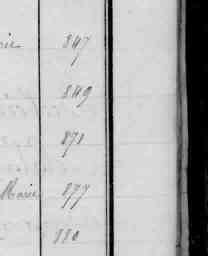 847
849
871
Marie 877
880